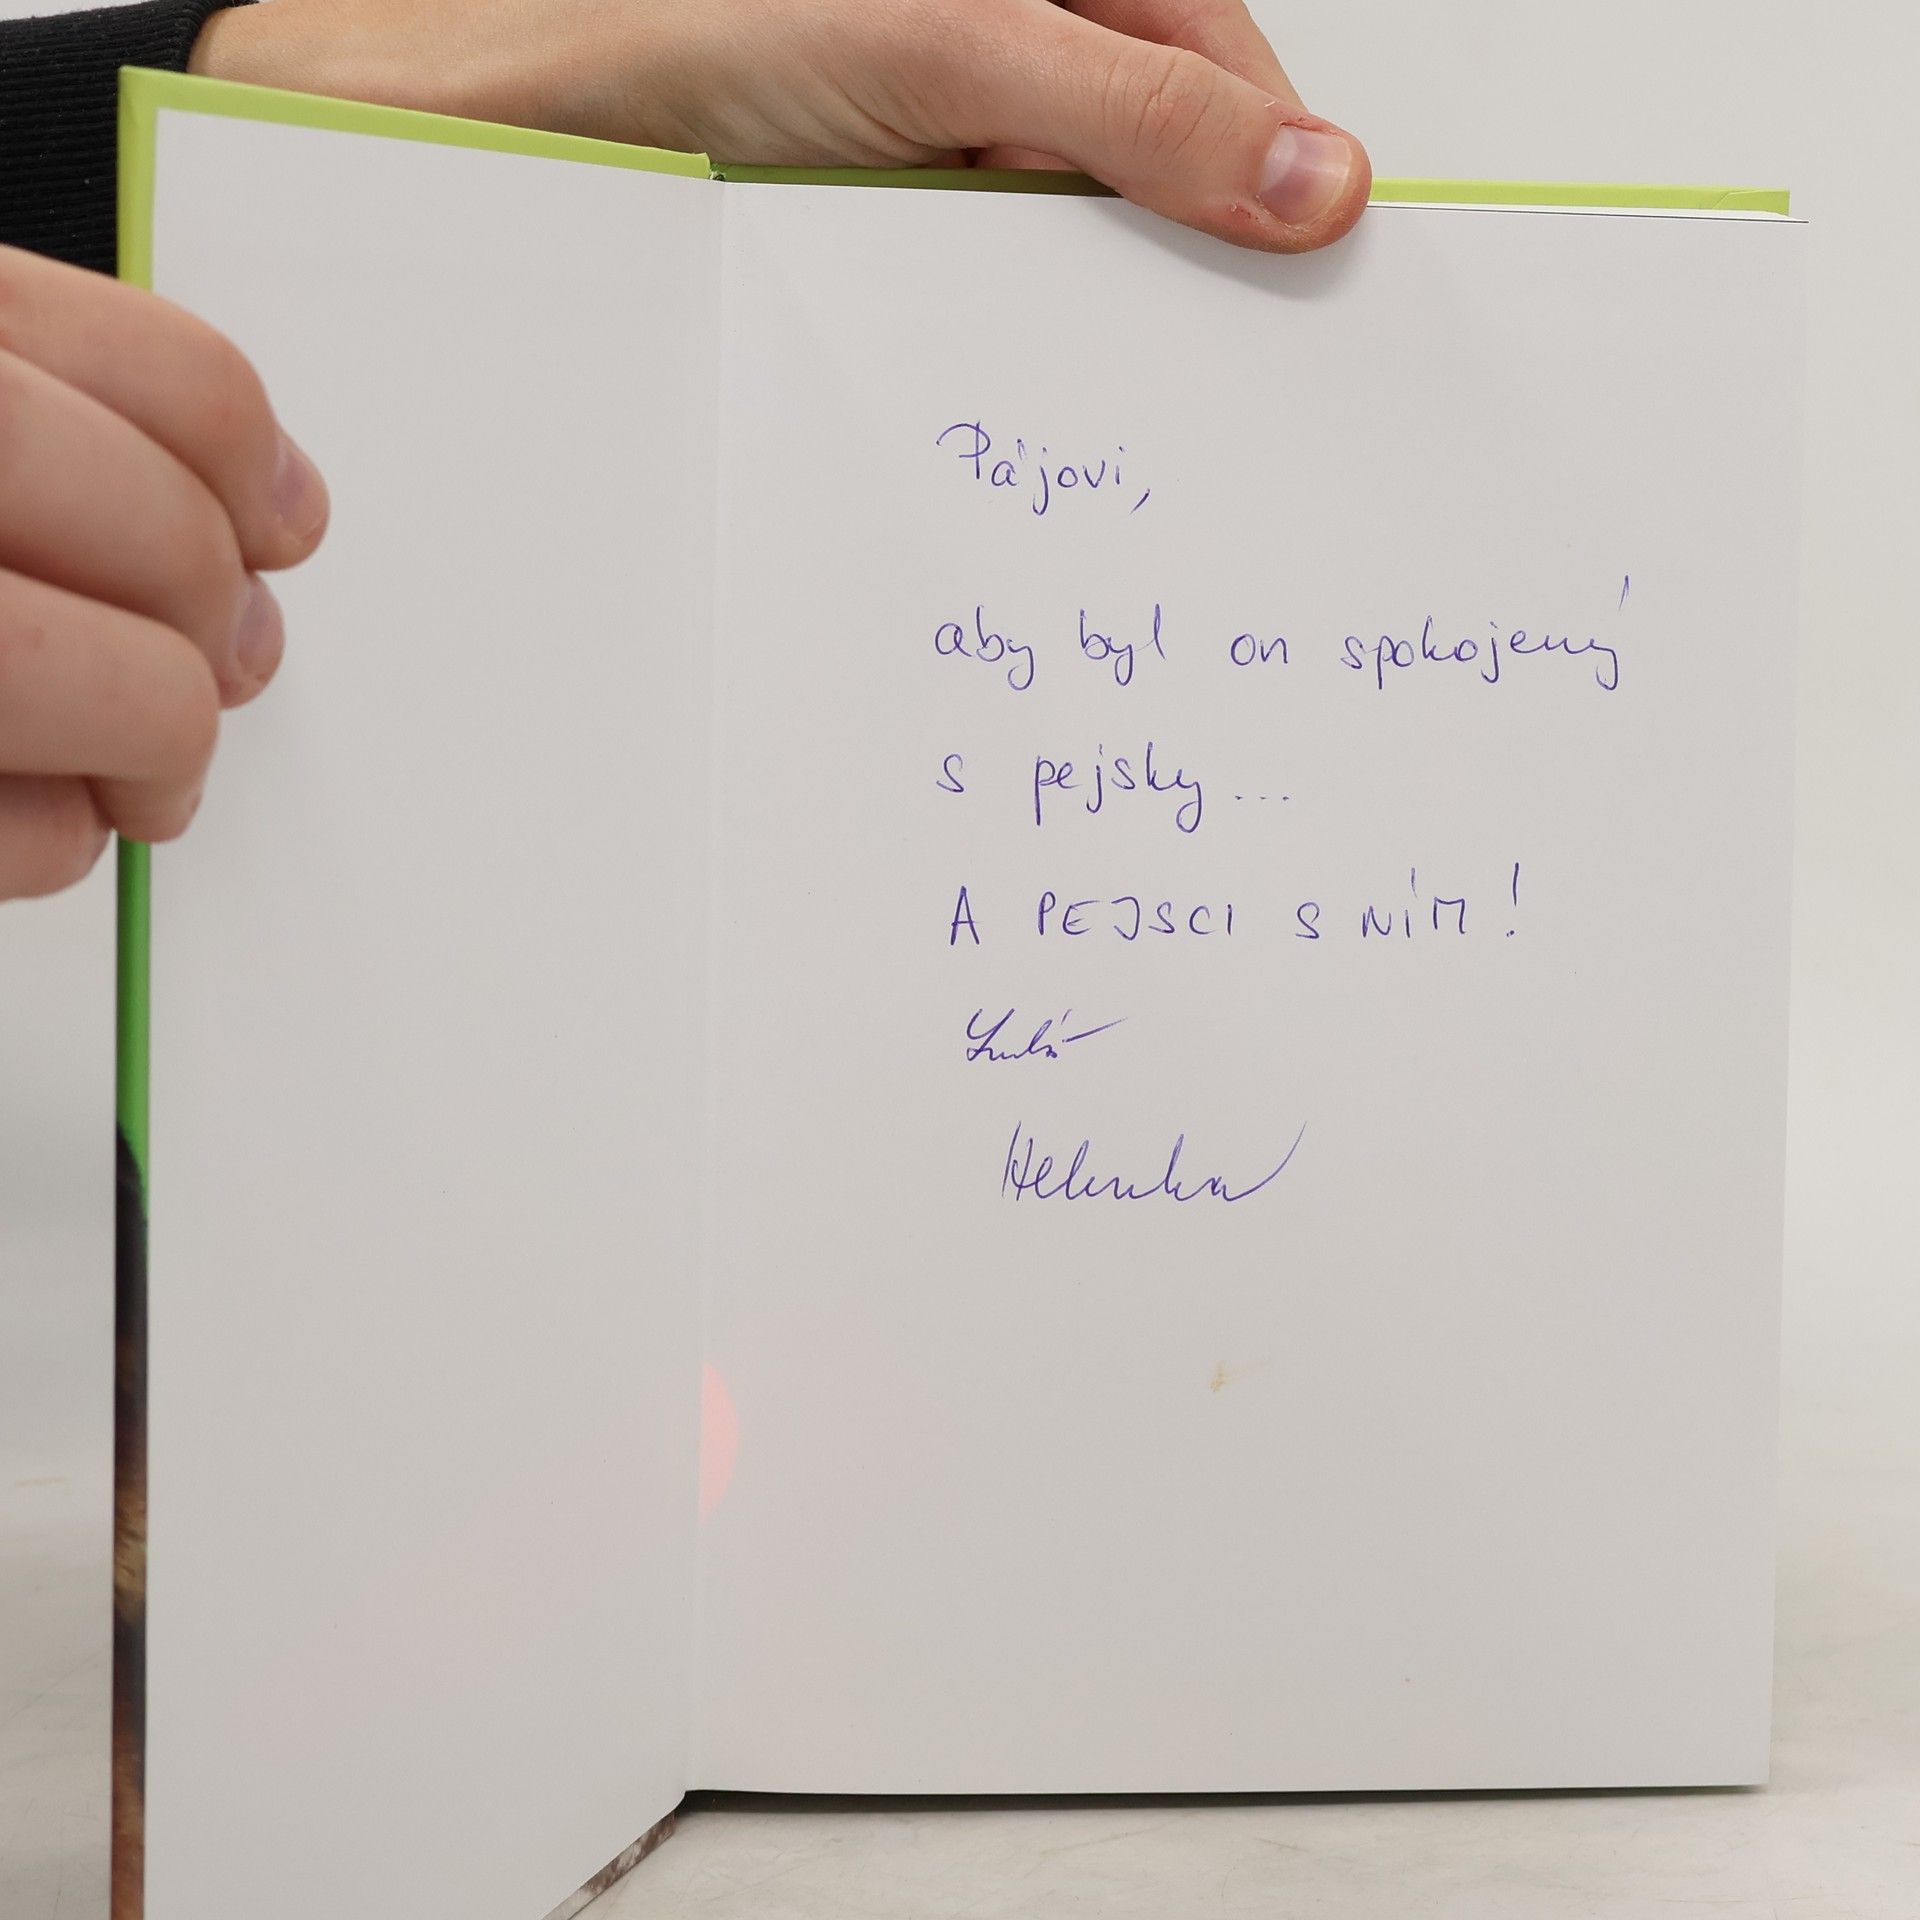 Pájovi,
aby byl on spokojený
s pejsky...
A PEJSCI S NÍM!
Helenka